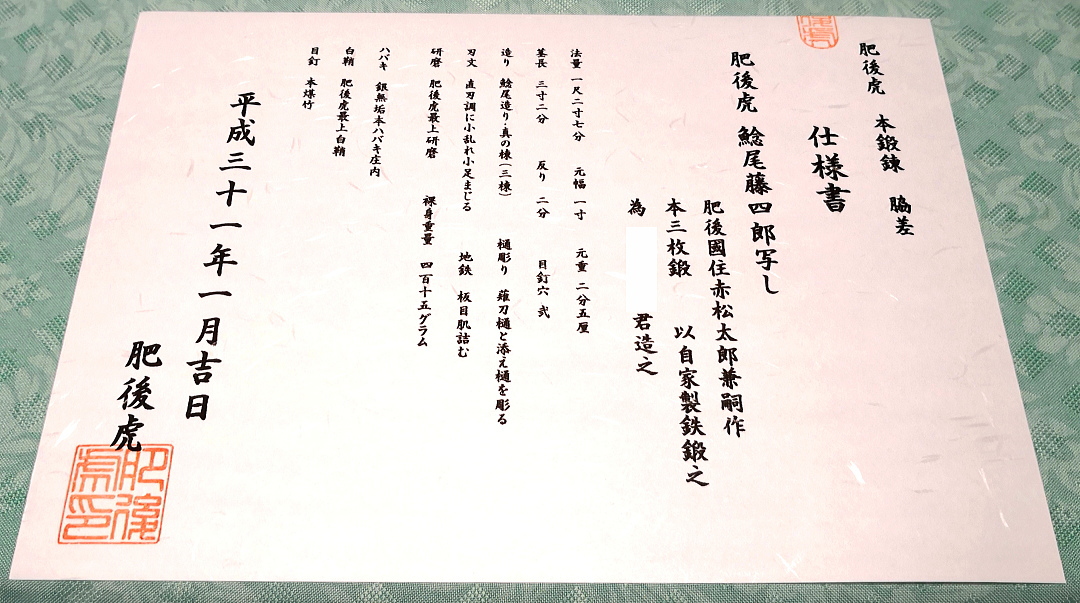 肥後虎 本鍛錬 脇差
仕様書
肥後虎 鯰尾藤四郎写し
肥後國住赤松太郎兼嗣作
本三枚鍛 以自家製鉄鍛之
為 君造之
法量 一尺二寸七分 元幅 一寸 元重 二分五厘
茎長 三寸二分 反り 二分 目釘穴 弐
造り 鯰尾造り・真の棟(三棟) 樋彫り 薙刀樋と添え樋を彫る
刃文 直刃調に小乱れ小足まじる 地鉄 板目肌詰む
研磨 肥後虎最上研磨 裸身重量 四百十五グラム
ハバキ 銀無垢本ハバキ庄内
白鞘 肥後虎最上白鞘
目釘 本煤竹
平成三十一年一月吉日
肥後虎
肥後虎印